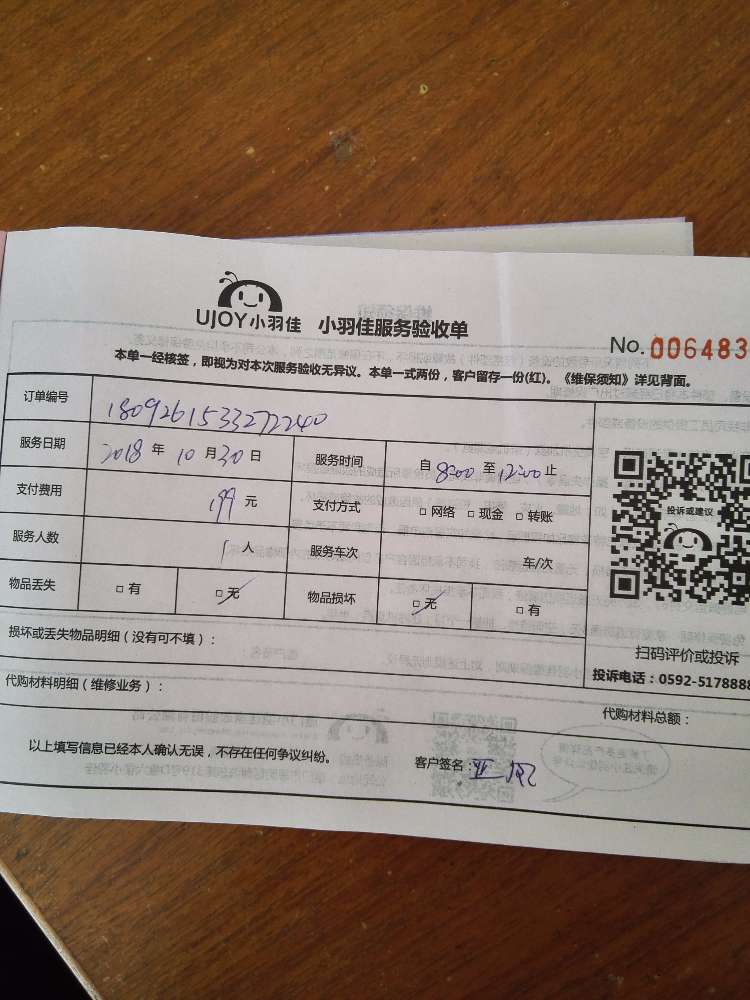 UJOY小羽佳 小羽佳服务验收单
No.006483
本单一经核签，即视为对本次服务验收无异议。本单一式两份，客户留存一份(红)。《维保须知》详见背面。
订单编号 1809261533272240
服务日期 2018 年 10 月 30 日 服务时间 自 8:00 至 12:00 止
支付费用 199 元 支付方式 □ 网络 □ 现金 □ 转账
服务人数 1 人 服务车次 车/次
物品丢失 □ 有 □ 无 物品损坏 □ 无 □ 有
投诉或建议
损坏或丢失物品明细（没有可不填）：
扫码评价或投诉
投诉电话：0592-5178888
代购材料明细（维修业务）：
代购材料总额：
以上填写信息已经本人确认无误，不存在任何争议纠纷。 客户签名：